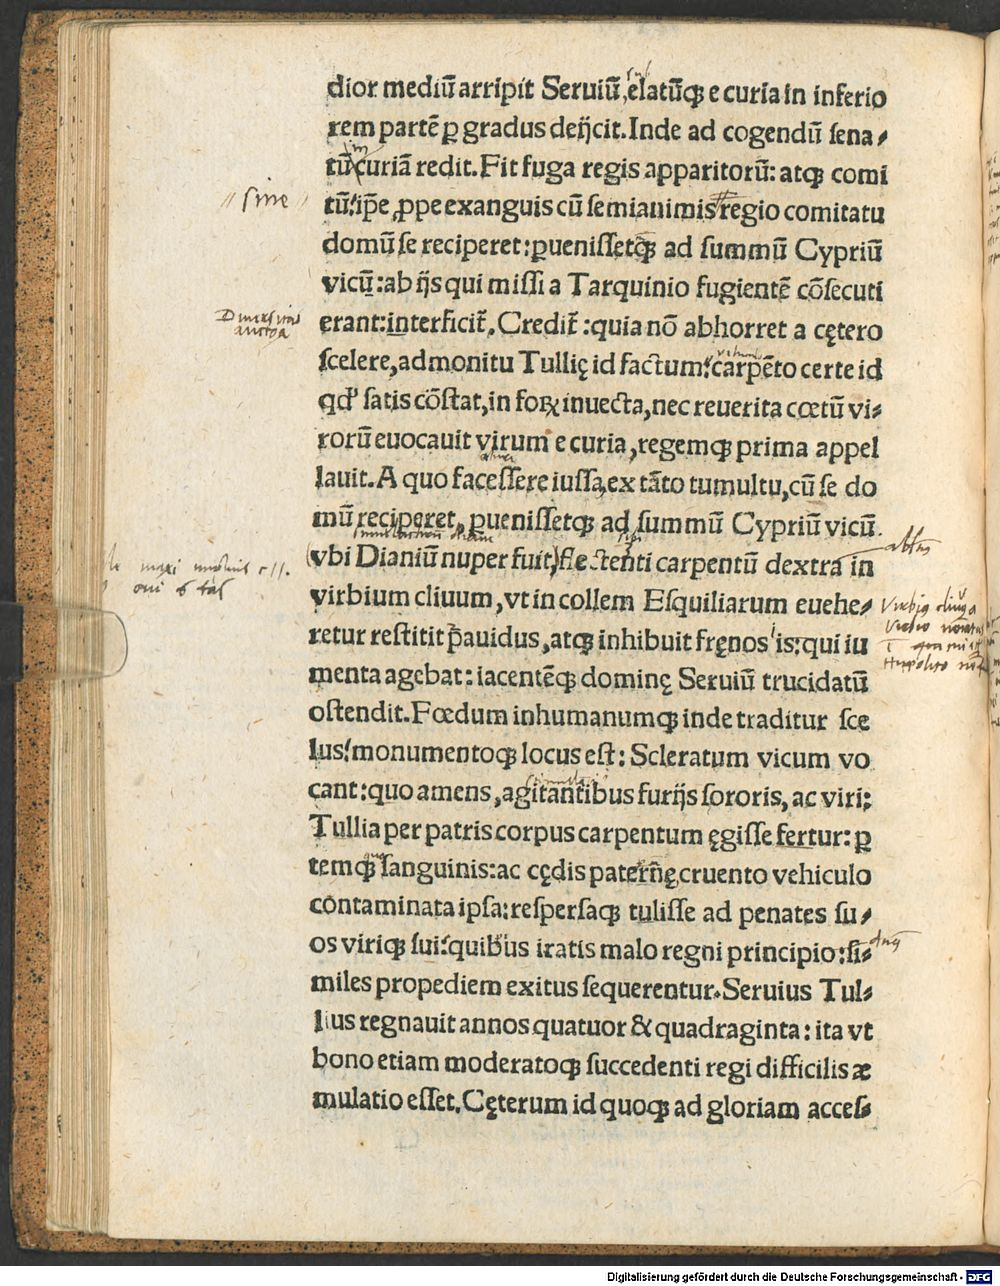 dior mediū arripit Seruiū, elatūqꝫ e curia in inferio
rem partē ꝑ gradus deijcit. Inde ad cogendū sena⸗
tū curiā redit. Fit fuga regis apparitorū: atqꝫ comi
sine
tū: ip̄e ꝓpe exanguis cū semianimis regio comitatu
domū se reciperet: ꝑuenissetqꝫ ad summū Cypriū
vicū: ab ijs qui missi a Tarquinio fugientē cōsecuti
erant: interficit̄. Credit̄: quia nō abhorret a cętero
scelere, admonitu Tullię id factum: carpēto certe id
qd' satis cōstat, in foꝝ inuecta, nec reuerita cœtū vi⸗
rorū euocauit virum e curia, regemqꝫ prima appel
lauit. A quo facessere iussa, ex tāto tumultu, cū se do
mū reciperet, ꝑuenissetqꝫ ad summū Cypriū vicū.
(vbi Dianiū nuper fuit) flectenti carpentū dextra in
virbium cliuum, vt in collem Esquiliarum euehe⸗
retur restitit p̄auidus, atqꝫ inhibuit fręnos is: qui iu
menta agebat: iacentēqꝫ dominę Seruiū trucidatū
ostendit. Fœdum inhumanumqꝫ inde traditur sce
lus: monumentoqꝫ locus est: Scleratum vicum vo
cant: quo amens, agitantibus furijs sororis, ac viri:
Tullia per patris corpus carpentum ęgisse fertur: ꝑ
temqꝫ sanguinis: ac cędis paternę, cruento vehiculo
contaminata ipsa: respersaqꝫ tulisse ad penates su⸗
os viriqꝫ sui: quibus iratis malo regni principio: si⸗
miles propediem exitus sequerentur. Seruius Tul⸗
lius regnauit annos quatuor & quadraginta: ita vt
bono etiam moderatoqꝫ succedenti regi difficilis æ
mulatio esset. Cęterum id quoqꝫ ad gloriam acces⸗
Digitalisierung gefördert durch die Deutsche Forschungsgemeinschaft - DFG